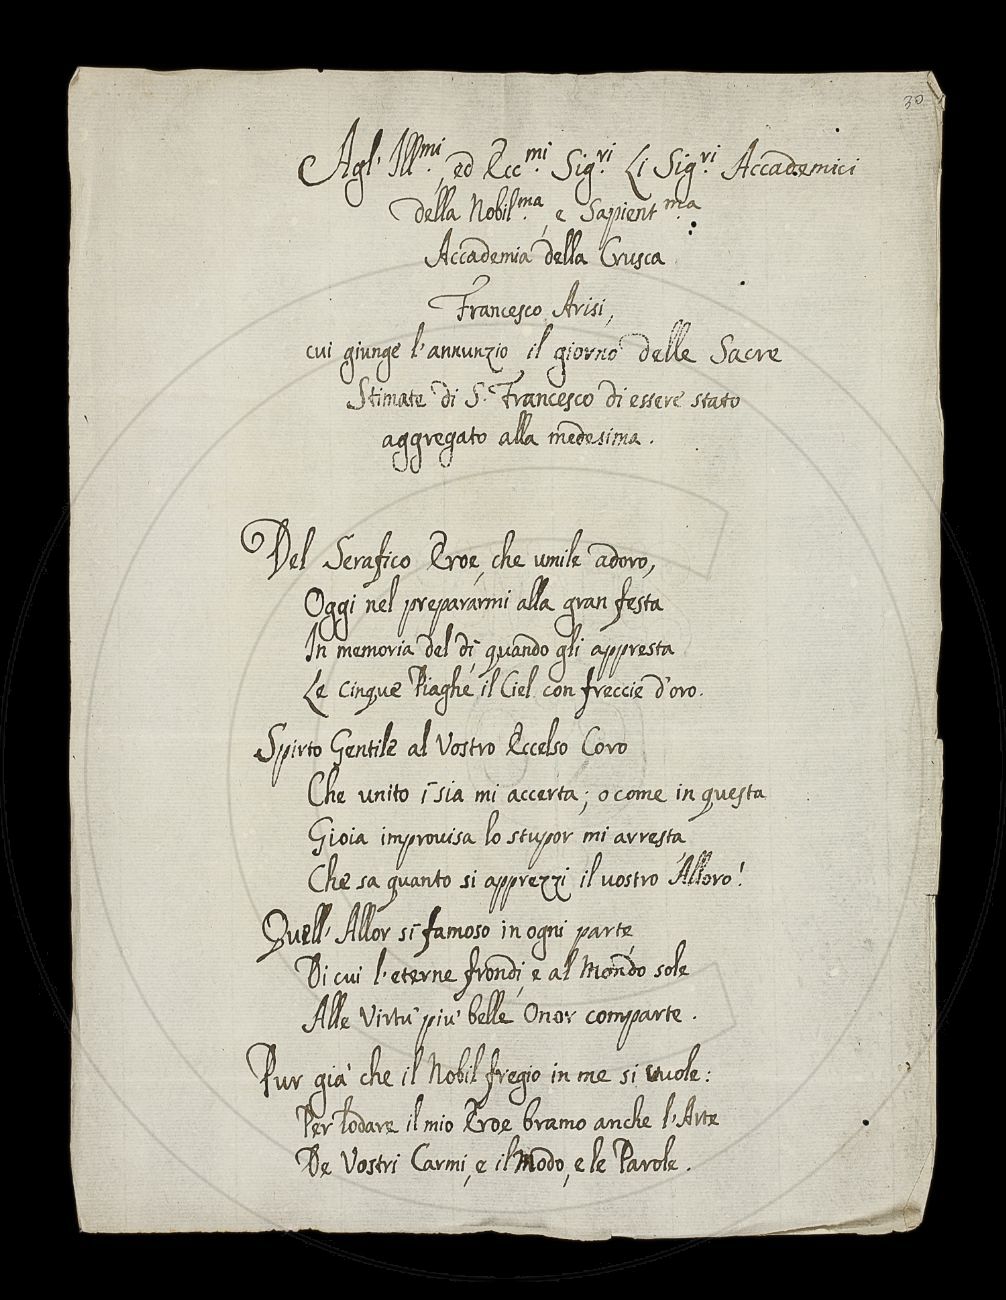 30
Agl' Ill.mi, ed Ecc.mi Sig.ri Li Sig.ri Accademici
della Nobil.ma, e Sapient.ma
Accademia della Crusca
Francesco Arisi,
cui giunge l'annunzio il giorno delle Sacre
Stimate di S. Francesco di essere stato
aggregato alla medesima.
Del Serafico Eroe, che umile adoro,
Oggi nel prepararmi alla gran festa
In memoria del dì, quando gli appresta
Le Cinque Piaghe il Ciel con freccie d'oro.
Spirto Gentile al Vostro Eccelso Coro
Che unito i' sia mi accerta; o come in questa
Gioia improuisa lo stupor mi arresta
Che sa quanto si apprezzi il uostro Alloro!
Quell' Allor sì famoso in ogni parte,
Di cui l'eterne frondi, e al Mondo sole
Alle Virtù più belle Onor comparte.
Pur già che il Nobil fregio in me si uuole:
Per lodare il mio Eroe bramo anche l'Arte
De Vostri Carmi, e il Modo, e le Parole.